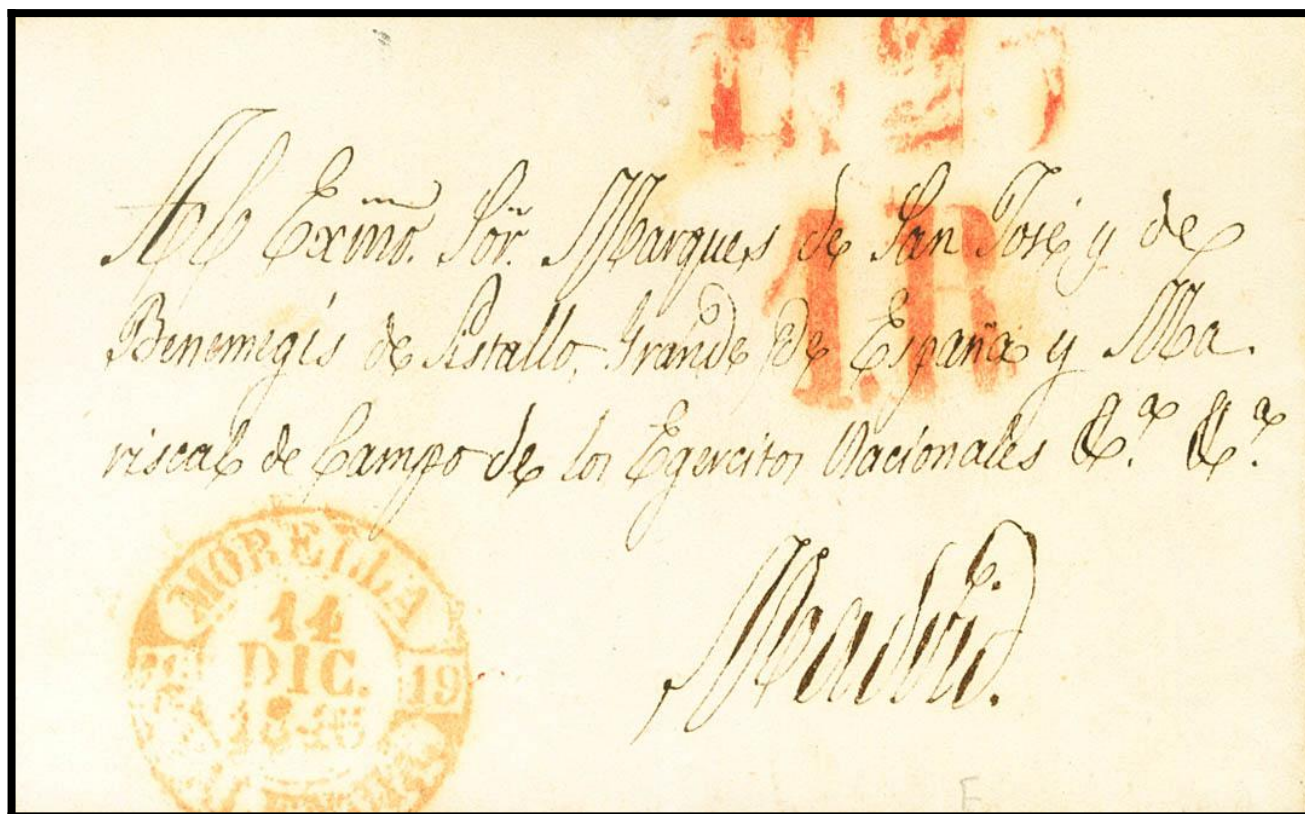 1.R
Al Exmõ. Sõr. Marques de San José y de
Benemegís de Sistallo, Grande de España y Ma.
riscal de Campo de los Egercitos Nacionales &.ª &.ª
MORELLA
14
DIC.
19
Madrid.